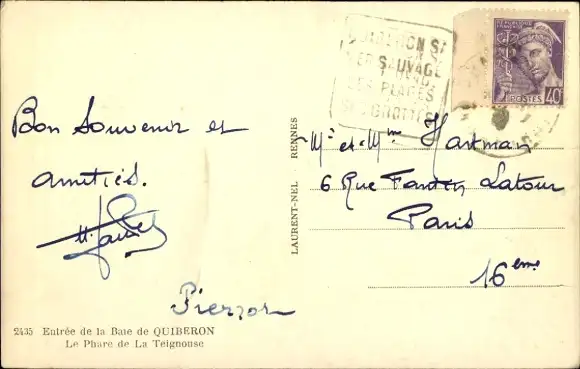 Bon Souvenir et
amitiés.
Pierron
2435 Entrée de la Baie de QUIBERON
Le Phare de La Teignouse
LAURENT-NEL RENNES
QUIBERON SA
MER SAUVAGE
SES PLAGES
SES GROTTES
REPUBLIQUE FRANÇAISE
POSTES 40c
Mr et Mme Hartman
6 Rue Fantin Latour
Paris
16eme